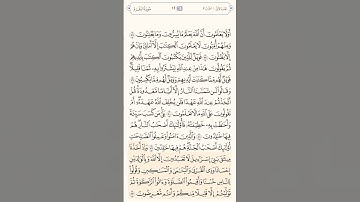 سورة البقرة ١٢
أَوَلَا يَعْلَمُونَ أَنَّ ٱللَّهَ يَعْلَمُ مَا يُسِرُّونَ وَمَا يُعْلِنُونَ
وَمِنْهُمْ أُمِّيُّونَ لَا يَعْلَمُونَ ٱلْكِتَٰبَ إِلَّآ أَمَانِيَّ وَإِنْ هُمْ
إِلَّا يَظُنُّونَ فَوَيْلٌ لِّلَّذِينَ يَكْتُبُونَ ٱلْكِتَٰبَ بِأَيْدِيهِمْ
ثُمَّ يَقُولُونَ هَٰذَا مِنْ عِندِ ٱللَّهِ لِيَشْتَرُوا۟ بِهِۦ ثَمَنًا قَلِيلًا
فَوَيْلٌ لَّهُم مِّمَّا كَتَبَتْ أَيْدِيهِمْ وَوَيْلٌ لَّهُم مِّمَّا يَكْسِبُونَ
وَقَالُوا۟ لَن تَمَسَّنَا ٱلنَّارُ إِلَّآ أَيَّامًا مَّعْدُودَةً قُلْ أَتَّخَذْتُمْ
عِندَ ٱللَّهِ عَهْدًا فَلَن يُخْلِفَ ٱللَّهُ عَهْدَهُۥٓ أَمْ
تَقُولُونَ عَلَى ٱللَّهِ مَا لَا تَعْلَمُونَ بَلَىٰ مَن كَسَبَ سَيِّئَةً
وَأَحَٰطَتْ بِهِۦ خَطِيٓـَٔتُهُۥ فَأُو۟لَٰٓئِكَ أَصْحَٰبُ ٱلنَّارِ هُمْ
فِيهَا خَٰلِدُونَ وَٱلَّذِينَ ءَامَنُوا۟ وَعَمِلُوا۟ ٱلصَّٰلِحَٰتِ
أُو۟لَٰٓئِكَ أَصْحَٰبُ ٱلْجَنَّةِ هُمْ فِيهَا خَٰلِدُونَ وَإِذْ أَخَذْنَا
مِيثَٰقَ بَنِىٓ إِسْرَٰٓءِيلَ لَا تَعْبُدُونَ إِلَّا ٱللَّهَ وَبِٱلْوَٰلِدَيْنِ
إِحْسَانًا وَذِى ٱلْقُرْبَىٰ وَٱلْيَتَٰمَىٰ وَٱلْمَسَٰكِينِ وَقُولُوا۟
لِلنَّاسِ حُسْنًا وَأَقِيمُوا۟ ٱلصَّلَوٰةَ وَءَاتُوا۟ ٱلزَّكَوٰةَ ثُمَّ
تَوَلَّيْتُمْ إِلَّا قَلِيلًا مِّنكُمْ وَأَنتُم مُّعْرِضُونَ